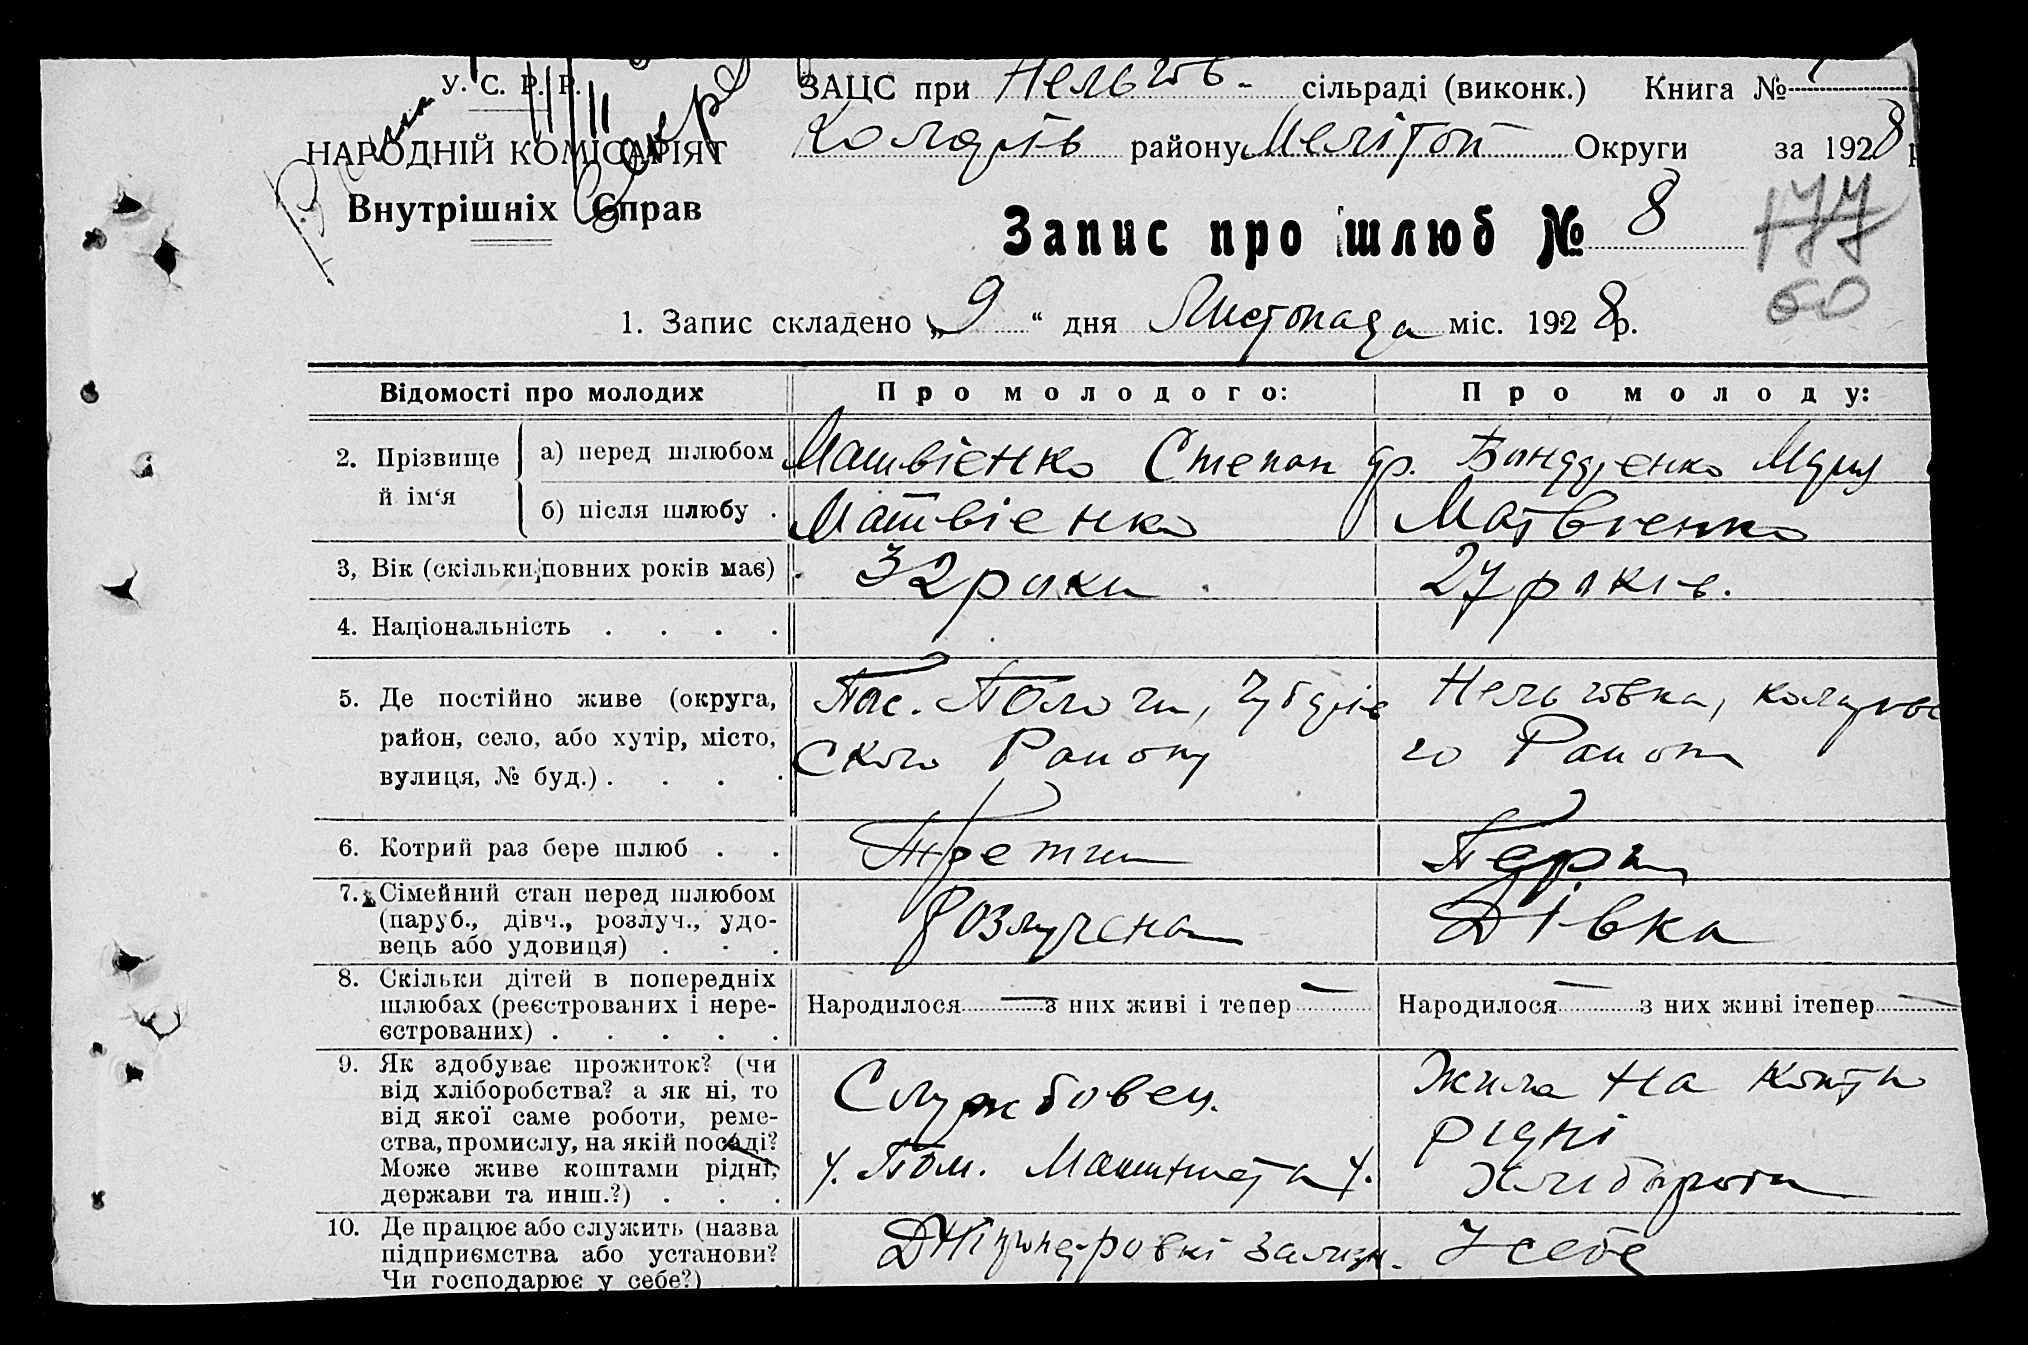 У. С. Р. Р.
НАРОДНІЙ КОМІСАРІЯТ
Внутрішніх Справ
ЗАЦС при Нельгов- сільраді (виконк.) Книга №
району Мелітоп Округи за 1928 р
Запис про шлюб № 8
177
60
1. Запис складено „9“ дня Листопада міс. 1928 р.
Відомості про молодих Про молодого: Про молоду:
2. Прізвище й ім‘я
а) перед шлюбом Матвієнко Степан гр. Бондаренко Марія
б) після шлюбу . Матвіенко Матвіенко
3, Вік (скільки повних років має) . 32 роки 27 років.
4. Національність . . . .
5. Де постійно живе (округа, Пос. Пологи, Чубарів Нельговка,
район, село, або хутір, місто, ского Раиону го Раиону
вулиця, № буд.) . . . .
6. Котрий раз бере шлюб . . Третии Перш
7. Сімейний стан перед шлюбом Розлучена Дівка
(паруб., дівч., розлуч., удо-
вець або удовиця) . . .
8. Скільки дітей в попередніх
шлюбах (реєстрованих і нере- Народилося — з них живі і тепер — Народилося — з них живі і тепер —
єстрованих) . . . . .
9. Як здобуває прожиток? (чи Жила на кошти
від хліборобства? а як ні, то Службовец.
від якої саме роботи, реме- рідні
ства, промислу, на якій посаді?
Може живе коштами рідні, Пом. Машиніста
держави та инш.?) . . .
10. Де працює або служить (назва У себе
підприємства або установи?
Чи господарює у себе?)